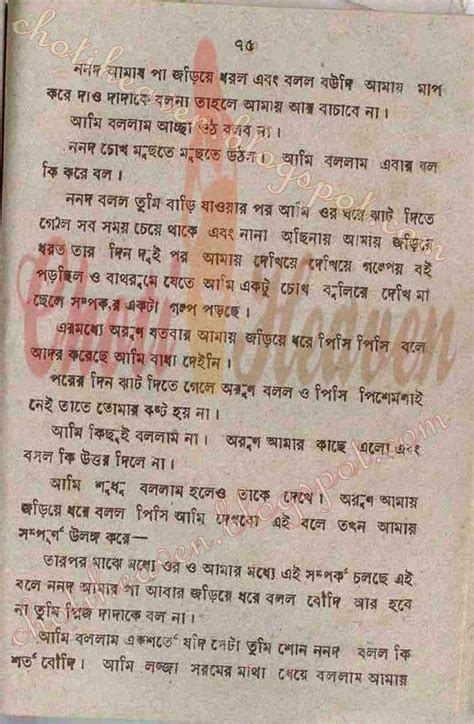 ৭৫
ননদ আমার পা জড়িয়ে ধরল এবং বলল বউদি আমায় মাপ
করে দাও দাদাকে বলনা তাহলে আমায় আর বাচাবে না।
আমি বললাম আচ্ছা ওঠ বলব না।
ননদ চোখ মুছতে মুছতে উঠল। আমি বললাম এবার বল
কি করে বল।
ননদ বলল তুমি বাড়ি যাওয়ার পর আমি ওর ঘরে ঝাট দিতে
গেলে সব সময় চেয়ে থাকে এবং নানা অছিনায় আমায় জড়িয়ে
ধরত তার দিন দুই পর আমায় দেখিয়ে দেখিয়ে গল্পের বই
পড়ছিল ও বাথরুমে যেতে আমি একটু চোখ বুলিরে দেখি মা
ছেলে সম্পর্ক,র একটা গল্প পড়ছে।
এরমধ্যে অরুণ যতবার আমায় জড়িয়ে ধরে পিসি পিসি বলে
আদর করেছে আমি বাধা দেইনি।
পরের দিন ঝাট দিতে গেলে অরুণ বলল ও পিসি পিশেমশাই
নেই তাতে তোমার কষ্ট হয় না।
আমি কিছুই বললাম না। অরুণ আমার কাছে এলো এবং
বলল কি উত্তর দিলে না।
আমি শুধু বললাম হলেও তাকে দেখে। অরুণ আমায়
জড়িয়ে ধরে বলল পিসি আমি দেখবো এই বলে তখন আমায়
সম্পূর্ণ উলঙ্গ করে—
তারপর মাঝে মধ্যে ওর ও আমার মধ্যে এই সম্পর্ক চলছে এই
বলে ননদ আমার পা আবার জড়িয়ে ধরে বলল বৌদি আর হবে
না তুমি প্লিজ দাদাকে বল না।
আমি বললাম একশর্তে যদি সেটা তুমি শোন ননদ বলল কি
শর্ত বৌদি। আমি লজ্জা সরমের মাথা খেয়ে বললাম আমায়
Choti Heaven
chotiheaven.blogspot.com